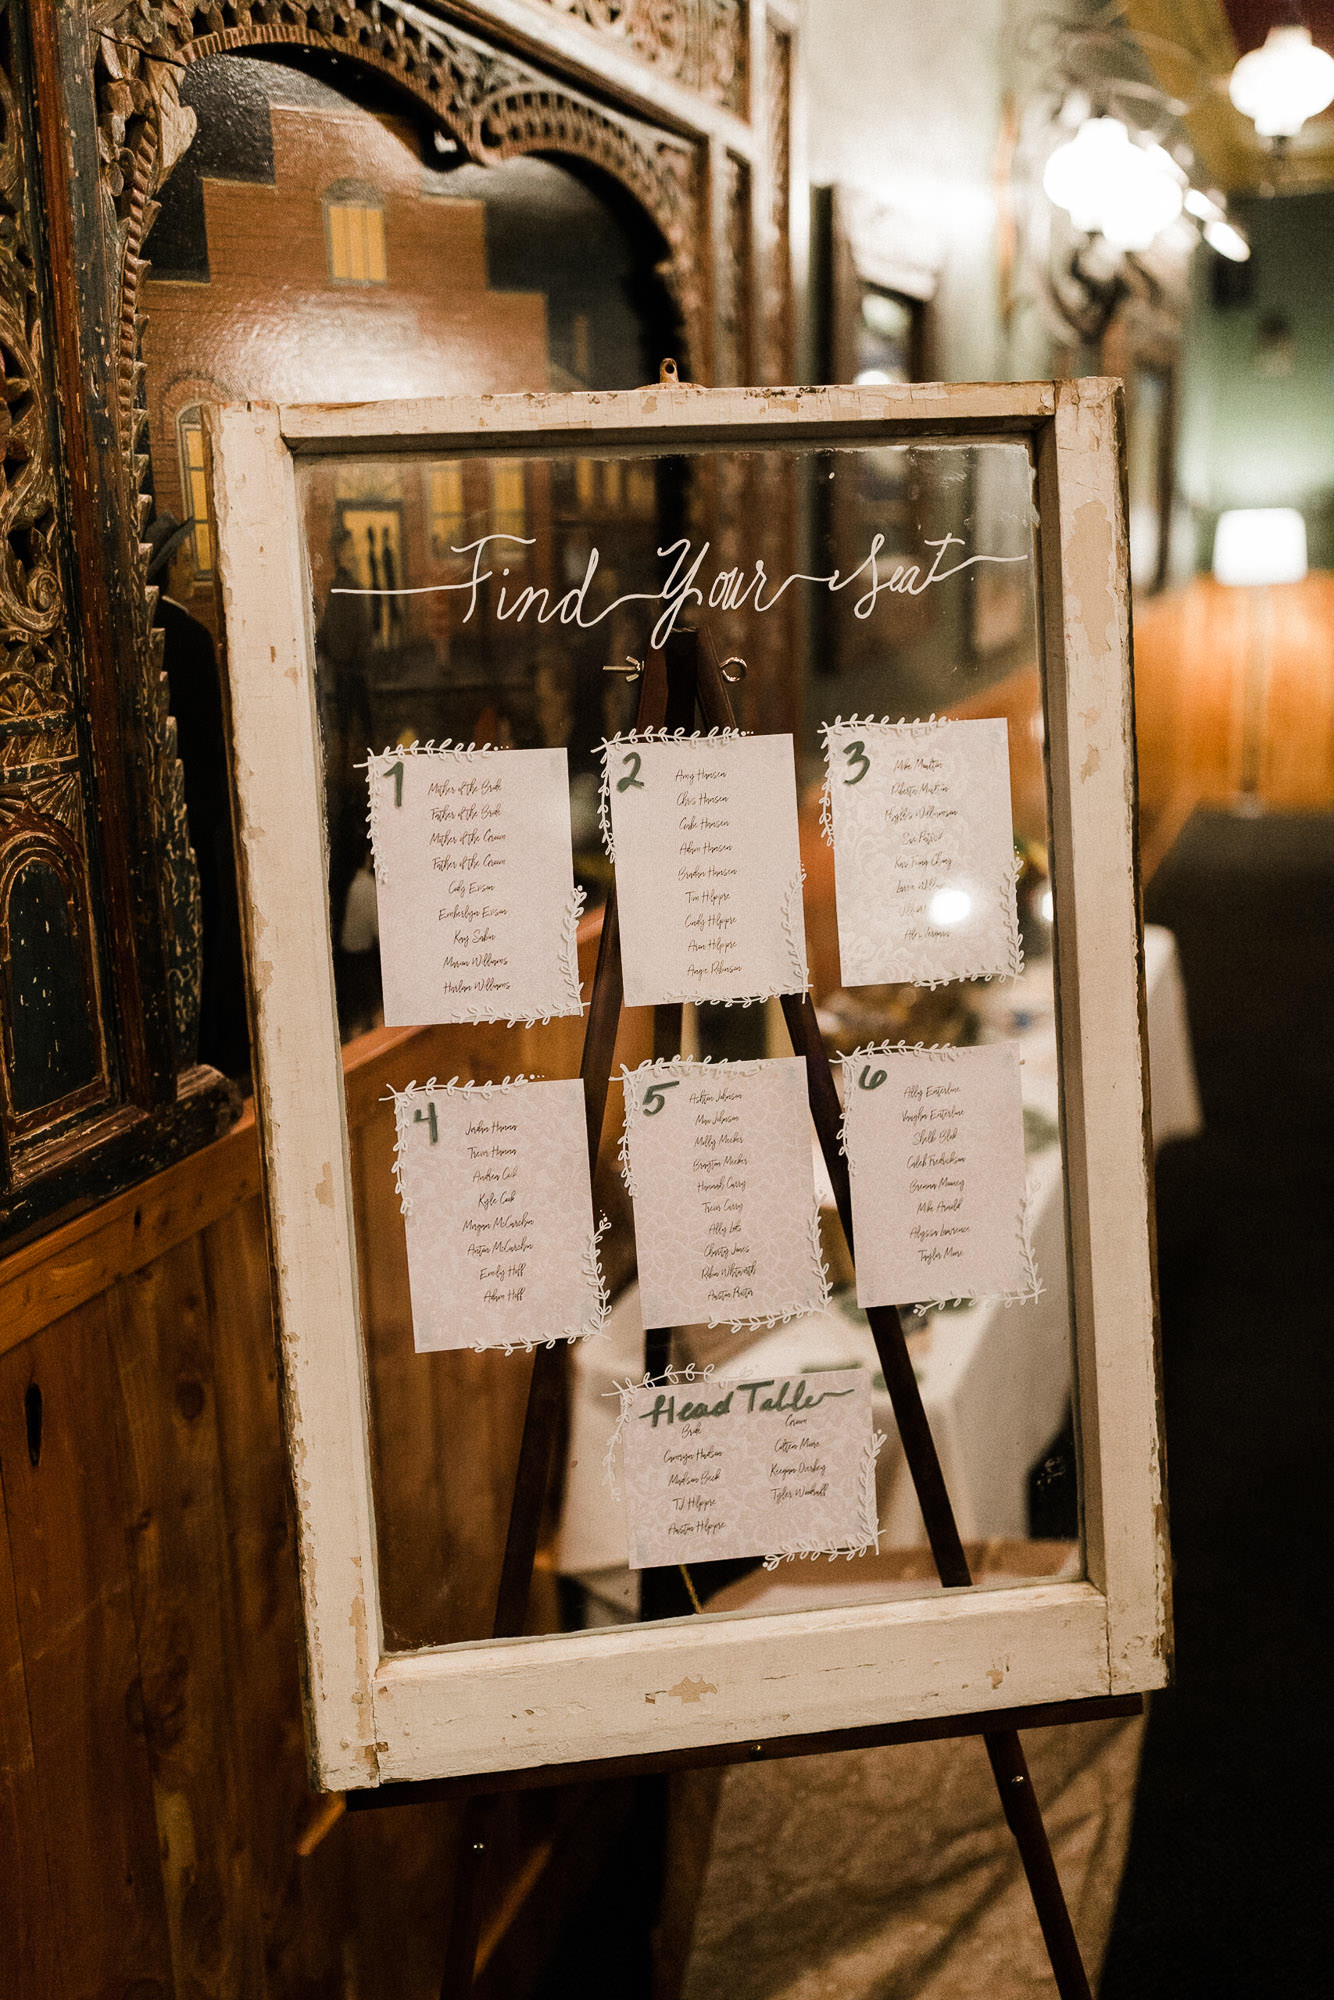 Find Your Seat
1
Mother of the Bride
Father of the Bride
Mother of the Groom
Father of the Groom
Cody Evison
Emberlyn Evison
Kay
Marion Williams
Harlan Williams
2
Amy Hansen
Chris Hansen
Hansen
Adam Hansen
Braden Hansen
Tim Hilppre
Cindy Hilppre
Aren Hilppre
Angie Robinson
3
Mike Moulton
Roberta
Phyllis Williamson
4
Jordan Hanna
Trevor Hanna
Andrea
Kyle
Megan McCutchin
Austin McCutchin
Emily Huff
Adam Huff
5
Ashton Johnson
Max Johnson
Molly Meeker
Braxton Meeker
Hannah Curry
Trevor Curry
Ally
Charity Jones
Robin Whitworth
Austin Proctor
6
Ally Enterline
Vaughn Enterline
Caleb Fredrickson
Brenna Mooney
Mike Arnold
Alyssa Lawrence
Taylor Moore
Head Table
Bride
Camryn Hudson
Madison Beck
TJ Hilppre
Austin Hilppre
Groom
Colten Moore
Keegan
Tyler Woodruff